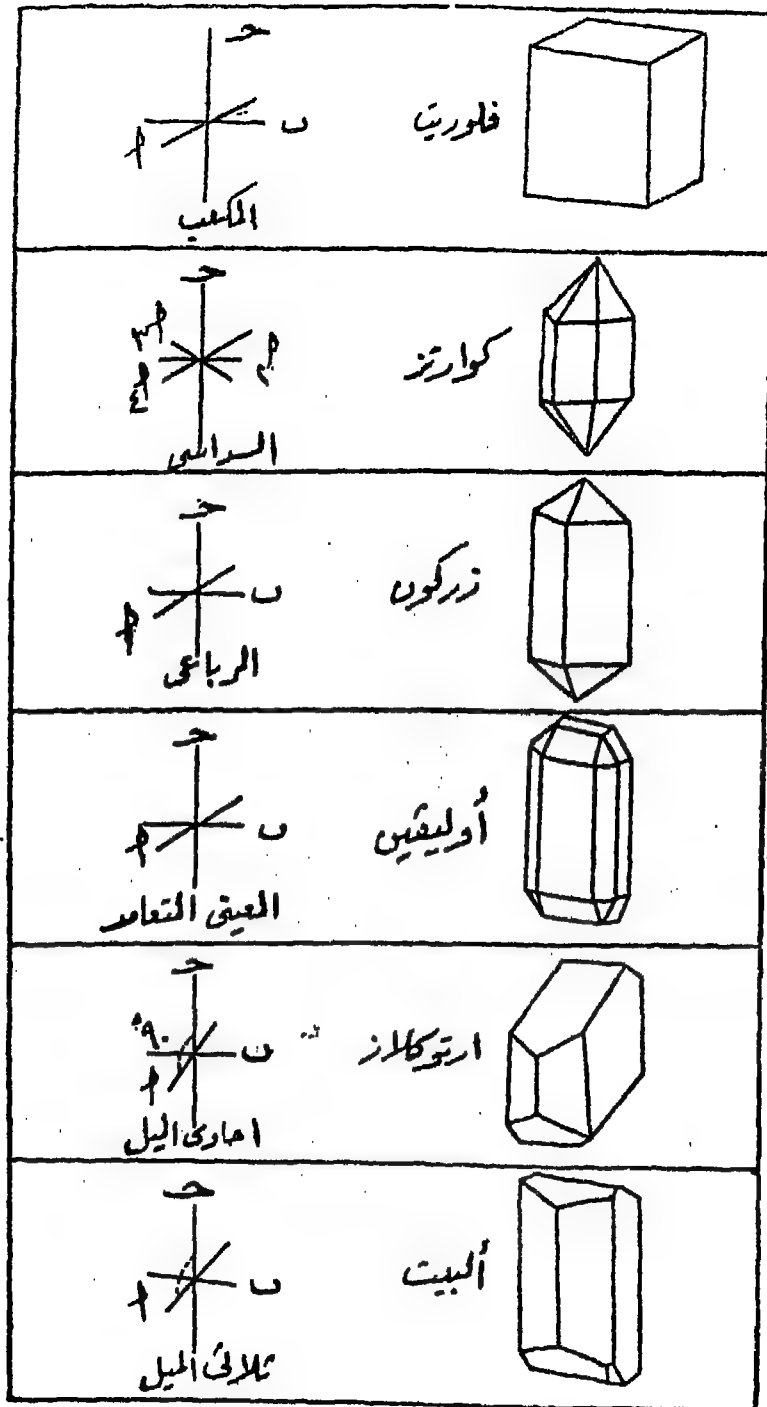 فلوريت
حـ
ب
أ
المكعب
كوارتز
حـ
أ٣
أ٢
أ٤
السداسى
زركون
حـ
ب
أ
الرباعى
أوليفين
حـ
ب
أ
المعينى المتعامد
ارتوكلاز
حـ
٩٠°
ب
أ
احادى الميل
ألبيت
حـ
ب
أ
ثلاثى الميل